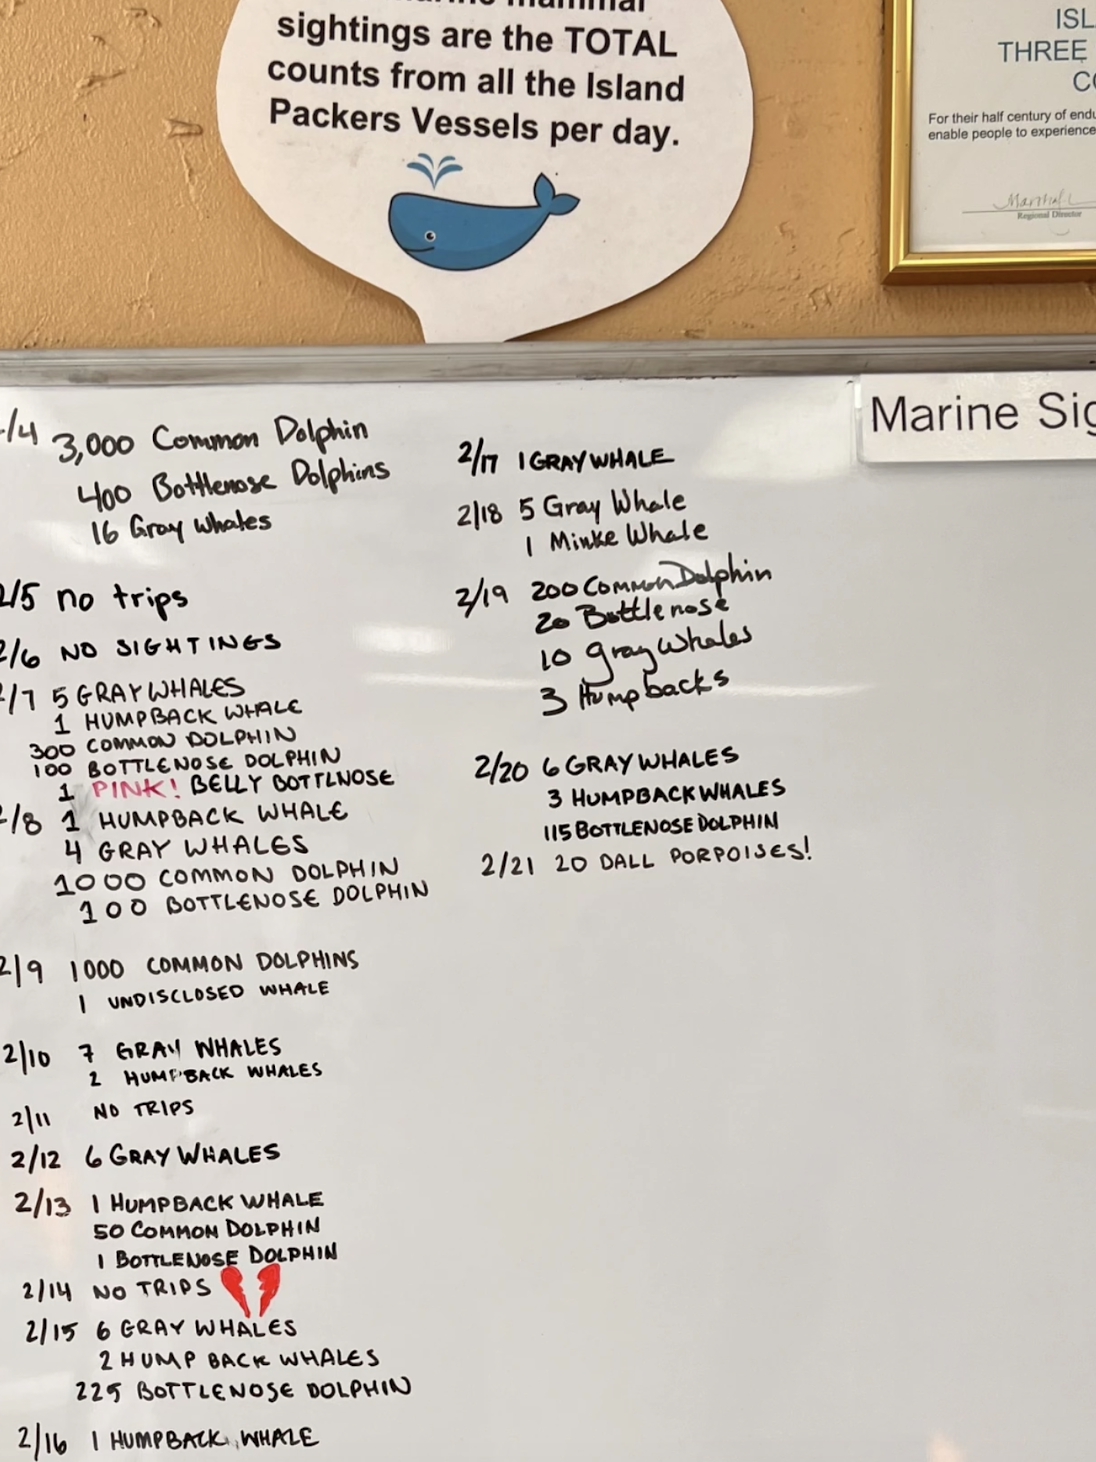 sightings are the TOTAL
counts from all the Island
Packers Vessels per day.
ISL
THREE
CO
For their half century of endu
enable people to experience
Regional Director
Marine Sig
/4 3,000 Common Dolphin
400 Bottlenose Dolphins
16 Gray whales
2/5 no trips
2/6 NO SIGHTINGS
2/7 5 GRAY WHALES
1 HUMPBACK WHALE
300 COMMON DOLPHIN
100 BOTTLENOSE DOLPHIN
1 PINK! BELLY BOTTLNOSE
2/8 1 HUMPBACK WHALE
4 GRAY WHALES
1000 COMMON DOLPHIN
100 BOTTLENOSE DOLPHIN
2/9 1000 COMMON DOLPHINS
1 UNDISCLOSED WHALE
2/10 7 GRAY WHALES
2 HUMPBACK WHALES
2/11 NO TRIPS
2/12 6 GRAY WHALES
2/13 1 HUMPBACK WHALE
50 COMMON DOLPHIN
1 BOTTLENOSE DOLPHIN
2/14 NO TRIPS
2/15 6 GRAY WHALES
2 HUMP BACK WHALES
225 BOTTLENOSE DOLPHIN
2/16 1 HUMPBACK WHALE
2/17 1 GRAY WHALE
2/18 5 Gray Whale
1 Minke Whale
2/19 200 Common Dolphin
20 Bottlenose
10 gray whales
3 Humpbacks
2/20 6 GRAY WHALES
3 HUMPBACK WHALES
115 BOTTLENOSE DOLPHIN
2/21 20 DALL PORPOISES!